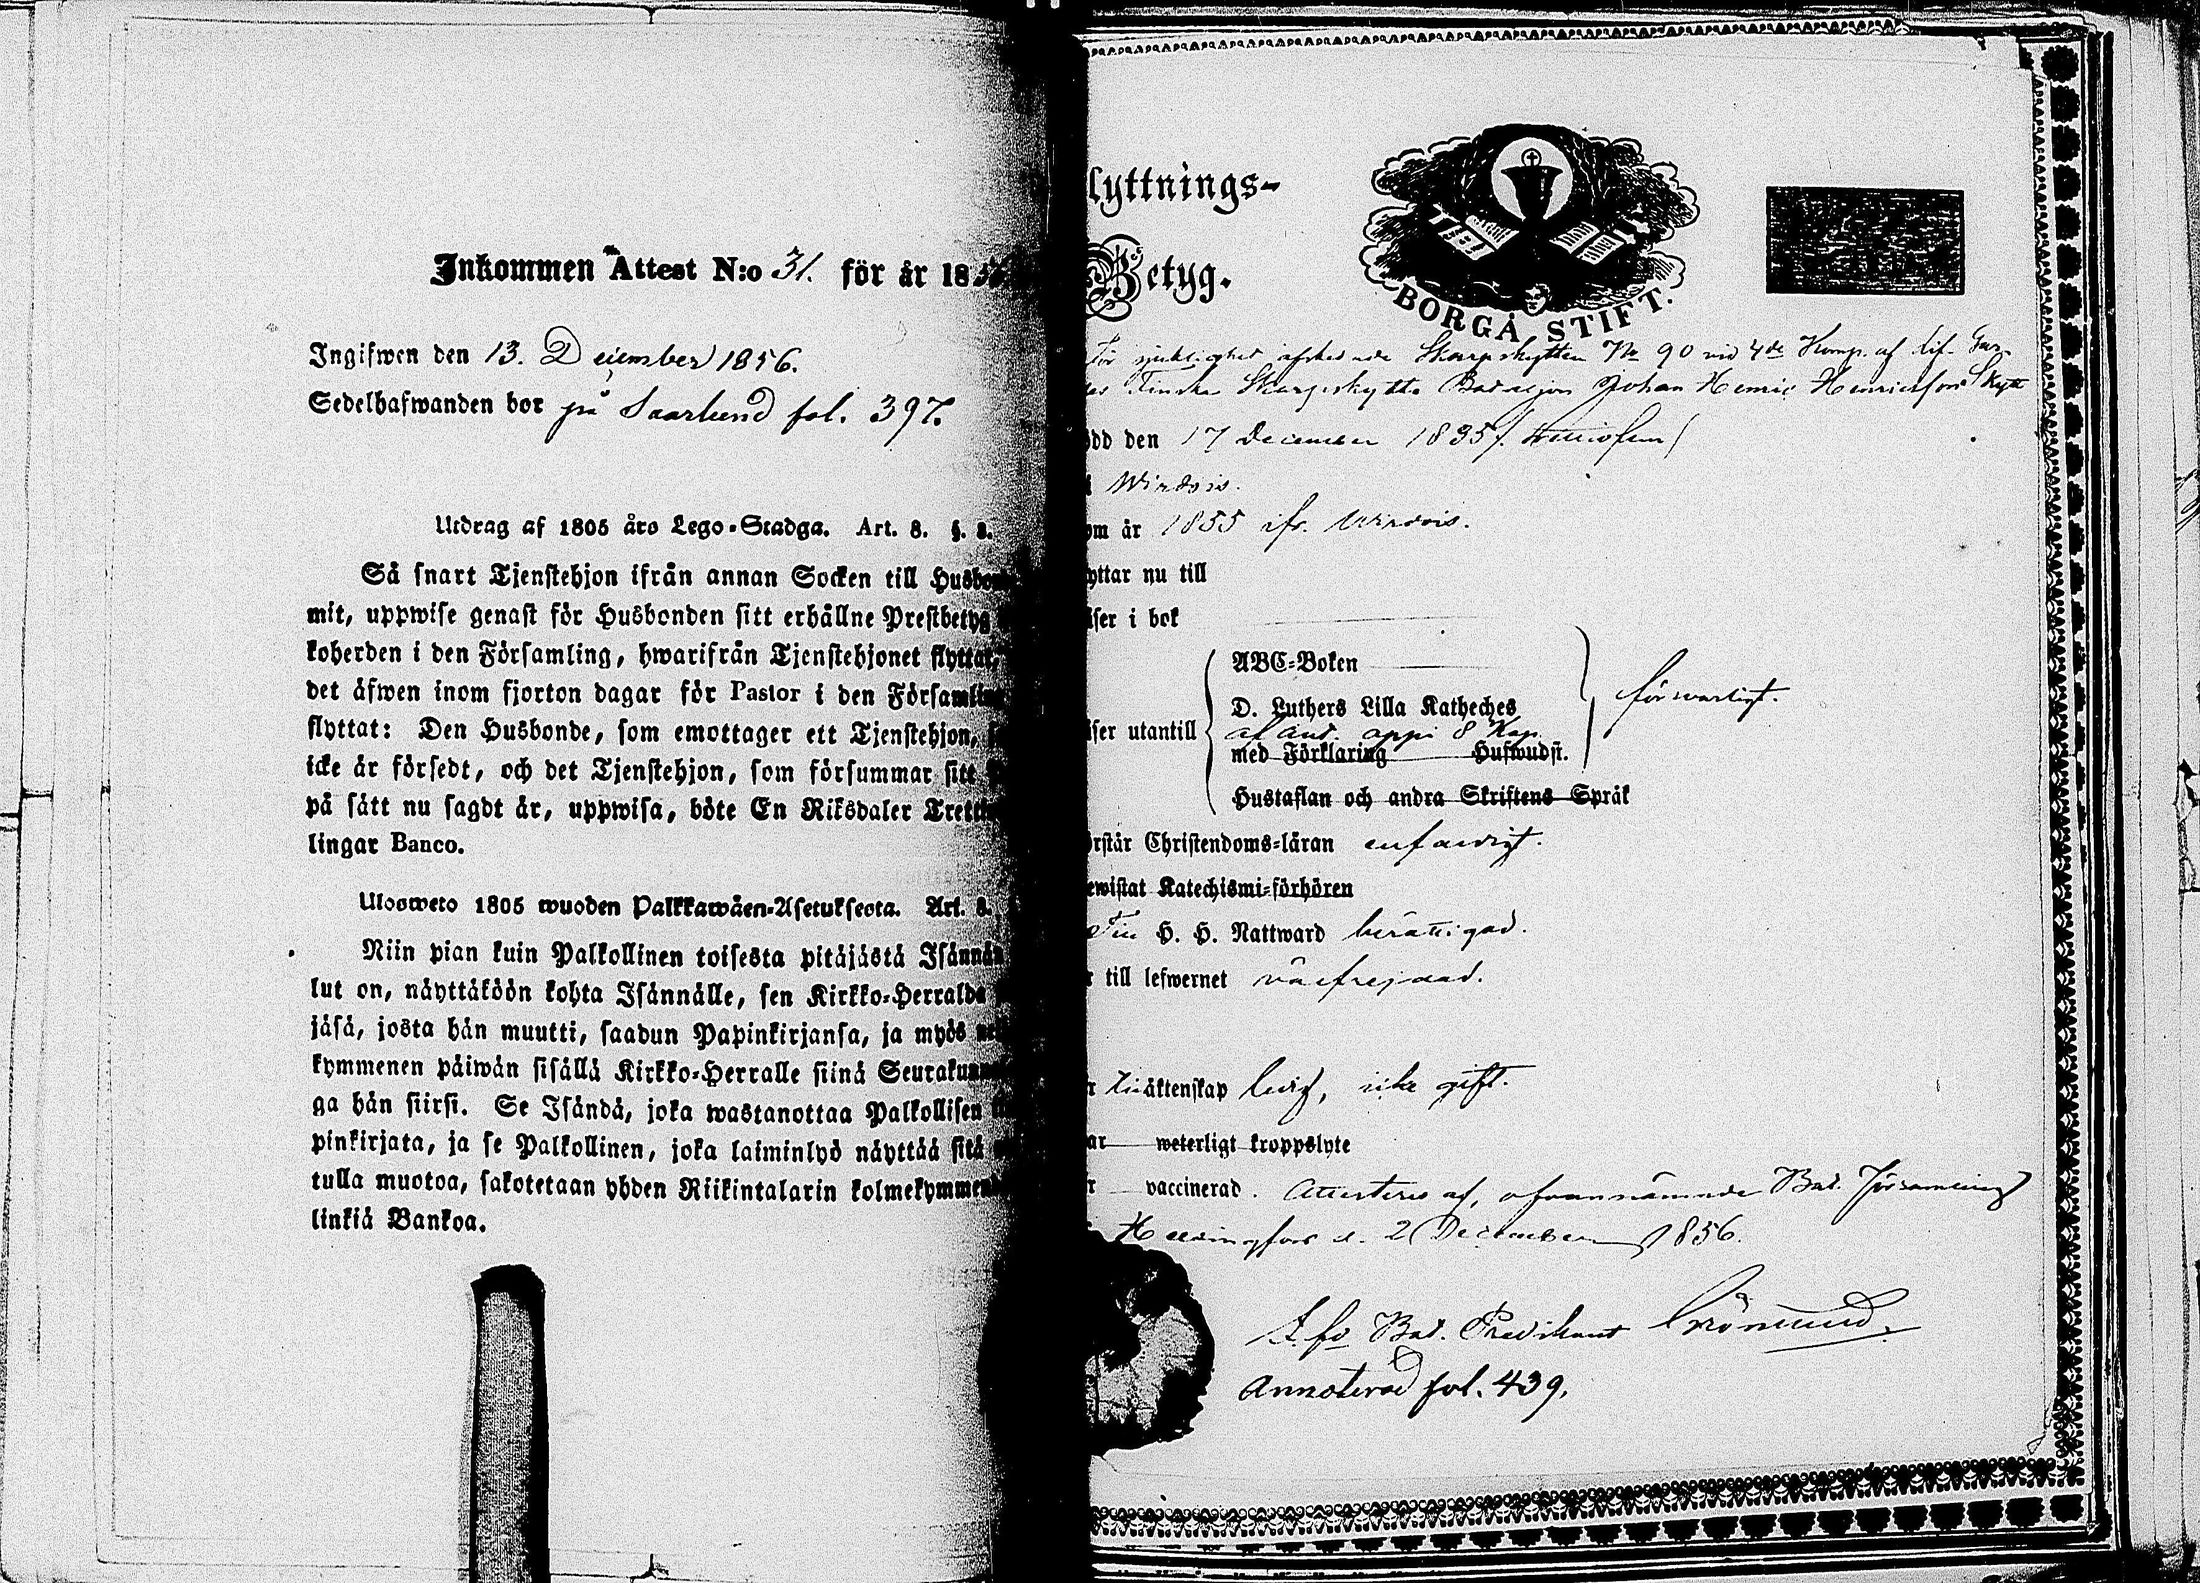 Inkommen Attest N:o 31. för år 185
Ingifwen den 13. December 1856.
Sedelhafwanden bor på Saarlund fol. 397.
Utdrag af 1805 års Lego-Stadga. Art. 8. §. 8.
Så snart Tjenstehjon ifrån annan Socken till Husbon
mit, uppwise genast för Husbonden sitt erhållne Prestbetyg
koherden i den Församling, hwarifrån Tjenstehjonet flyttat,
det äfwen inom fjorton dagar för Pastor i den Församlin
flyttat: Den Husbonde, som emottager ett Tjenstehjon, s
icke är försedt, och det Tjenstehjon, som försummar sitt
på sätt nu sagdt är, uppwisa, böte En Riksdaler Tretti
lingar Banco.
Ulosweto 1805 wuoden Palkkawäen-Asetuksesta. Art. 8.
Niin pian kuin Palkollinen toisesta pitäjästä Isännän
lut on, näyttäköön kohta Isännälle, sen Kirkko-Herralda
jäsä, josta hän muutti, saadun Papinkirjansa, ja myös nel
kymmenen päiwän sisällä Kirkko-Herralle siinä Seurakunn
ga hän siirsi. Se Isändä, joka wastanottaa Palkollisen
pinkirjata, ja se Palkollinen, joka laiminlyö näyttää sitä
tulla muotoa, sakotetaan yhden Riikintalarin kolmekymmen
linkiä Bankoa.
lyttnings-
Betyg.
BORGÅ STIFT.
För sjuklighet afskedade Skarpskytten No 90 vid 4de Komp. af Lif-Gar-
des Finska Skarpskytte Bataljon Johan Henric Henricsson Skytt
ödd den 17 December 1835 (trettiofem)
i Wirdois.
om år 1855 ifr. Wirdois.
yttar nu till
äser i bok
ABC-Boken
D. Luthers Lilla Katheches
af Ant. opp i 8 Kap.
med Förklaring Hufwudst.
förswarligt.
äser utantill
Hustaflan och andra Skriftens Språk
örstår Christendoms-läran enfaldigt.
ewistat Katechismi-förhören
Till H. H. Nattward berättigad.
r till lefwernet wälfrejdad.
r till äktenskap ledig, icke gift.
ar weterligt kroppslyte
r vaccinerad. Attesteras af, ofvannämnde Bat. Församling
Helsingfors d. 2 December 1856.
T.fö Bat. Predikant Grönlund.
Annoterad fol. 439.